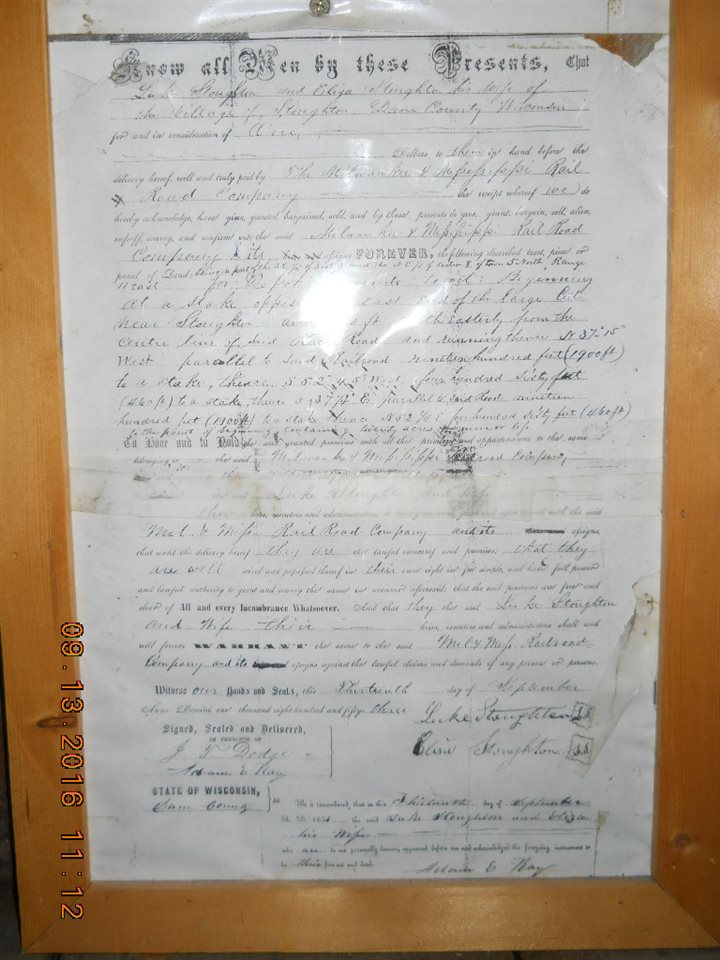 Know all Men by these Presents, That
Luke Stoughton and Eliza Stoughton his wife of
the Village of Stoughton Dane County Wisconsin
for and in consideration of One
Dollars to them in hand before the
delivery hereof, well and truly paid by The Milwaukee & Mississippi Rail
Road Company the receipt whereof we do
hereby acknowledge, have given, granted, bargained, sold, and by these presents do give, grant, bargain, sell, alien,
enfeoff, convey, and confirm unto the said Milwaukee & Mississippi Rail Road
Company its assigns FOREVER, the following described tract, piece or
parcel of Land, being a part of the S.E. 1/4 of and the N.E. 1/4 of section 8, of town 5 North, Range
11 East for Depot Grounds to wit: Beginning
at a stake opposite East End of the large Cut
near Stoughton ft Easterly from the
Centre line of said Rail Road and running thence N 37° 15'
West parallel to said Railroad nineteen hundred feet (1900 ft)
to a stake, thence S 52° 45' West four hundred sixty feet
(460 ft) to a stake, thence S 37 1/4 E parallel to said Road nineteen
hundred feet (1900 ft) to a stake thence N 52 3/4 E four hundred sixty feet (460 ft)
to the point of beginning, containing twenty acres
To Have and to Hold the said granted premises with all the privileges and appurtenances to the same
belonging to the said Milwaukee & Mississippi Railroad Company
Luke Stoughton and wife
heirs, executors and administrators, do with the said
Mil. & Miss. Rail Road Company and its assigns,
that until the delivery hereof they are the lawful owners of said premises; that they
are well seized and possessed thereof in their own right in fee simple, and have full power
and lawful authority to grant and convey the same in manner aforesaid; that the said premises are free and
clear of All and every Incumbrance Whatsoever. And that they the said Luke Stoughton
and Wife their heirs, executors and administrators shall and
will forever WARRANT the same to the said Mil & Miss. Railroad
Company and its assigns against the lawful claims and demands of any person or persons.
Witness our Hands and Seals, this Thirteenth day of September
Anno Domini one thousand eight hundred and fifty three
Luke Stoughton L.S.
Signed, Sealed and Delivered,
IN PRESENCE OF
Elisa Stoughton L.S.
J. T. Dodge
Adam E Ray
STATE OF WISCONSIN,
Dane County
ss
Be it remembered, that on this Thirteenth day of September
A.D. 1853 the said Luke Stoughton and Eliza
his Wife
who are to me personally known, appeared before me and acknowledged the foregoing instrument to
be their free act and deed.
Adam E Ray
09.13.2016 11:12